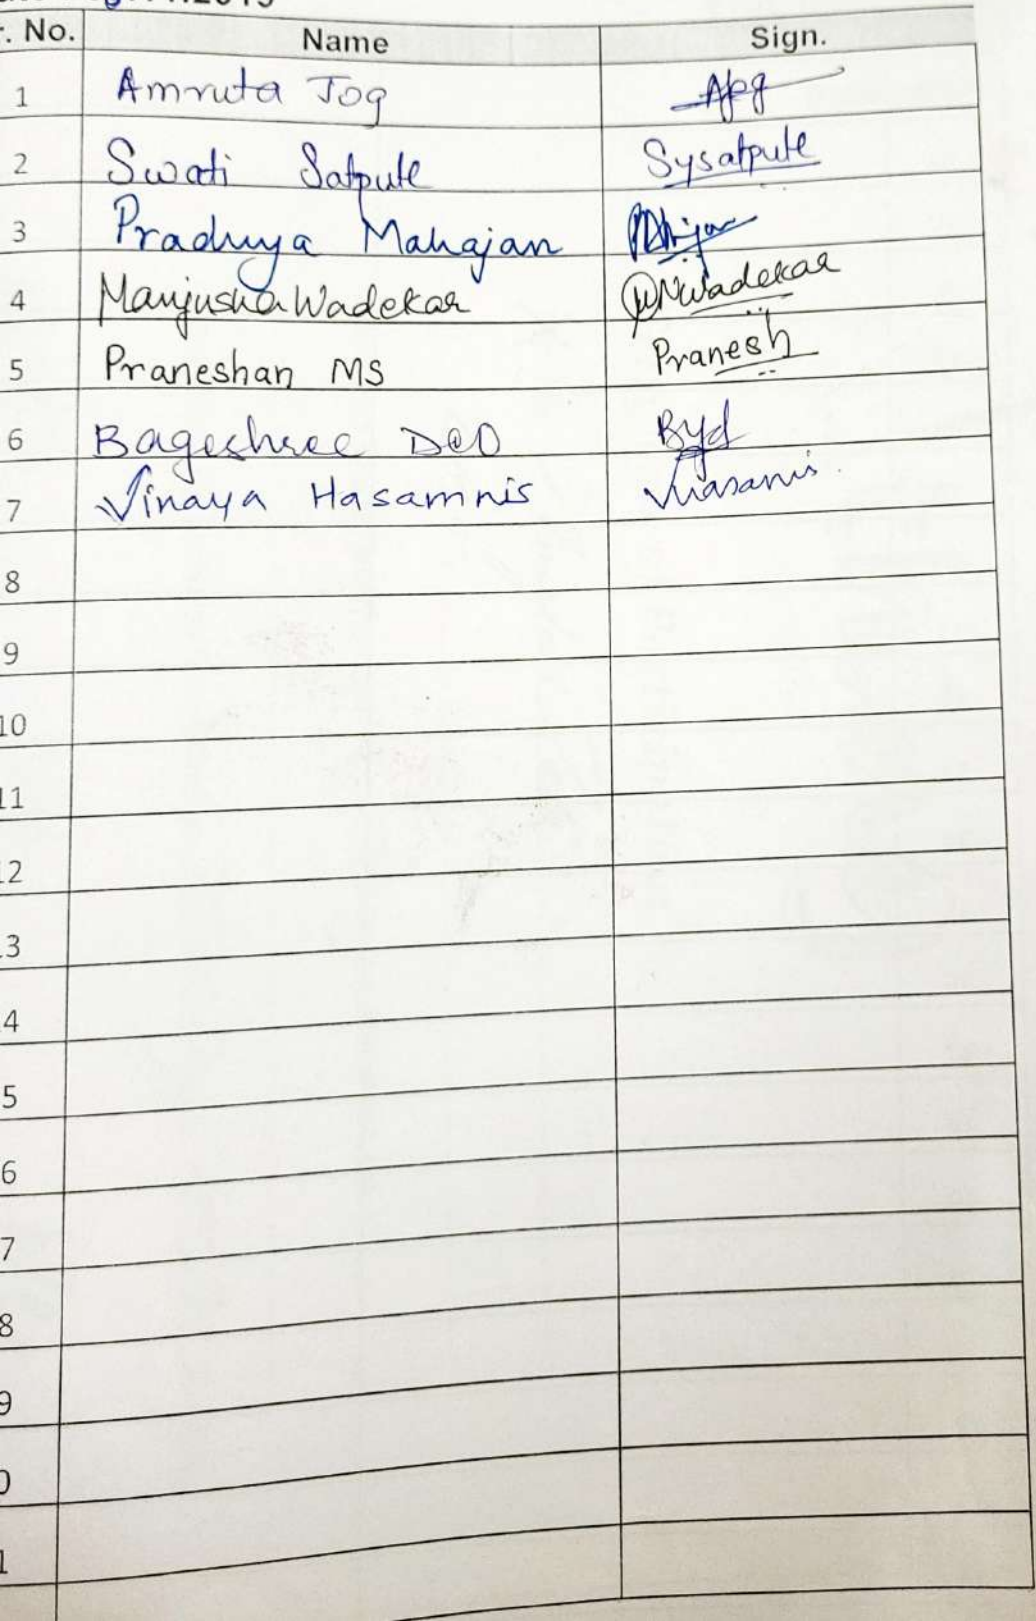 . No. Name Sign.
1 Amruta Jog
2 Swati Satpute Sysatpute
3 Pradnya Mahajan
4 Manjusha Wadekar Wadekar
5 Praneshan MS Pranesh
6 Bageshree DeO Byd
7 Vinaya Hasamnis
8
9
10
11
12
13
4
5
6
7
8
9
0
1